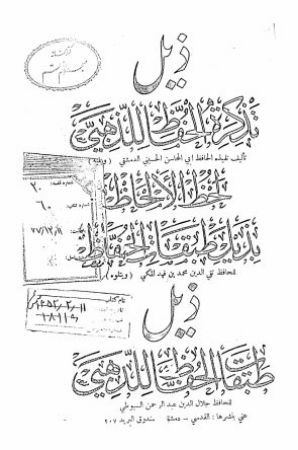 ذيل
تذكرة الحفاظ للذهبي
تأليف تلميذه الحافظ أبي المحاسن الحسيني الدمشقي (ويليه)
لحظ الألحاظ
بذيل طبقات الحفاظ
للحافظ تقي الدين محمد بن فهد المكي (ويتلوه)
ذيل
طبقات الحفاظ للذهبي
للحافظ جلال الدين عبد الرحمن السيوطي
عني بنشرها : القدسي – دمشق صندوق البريد ٢٠٧